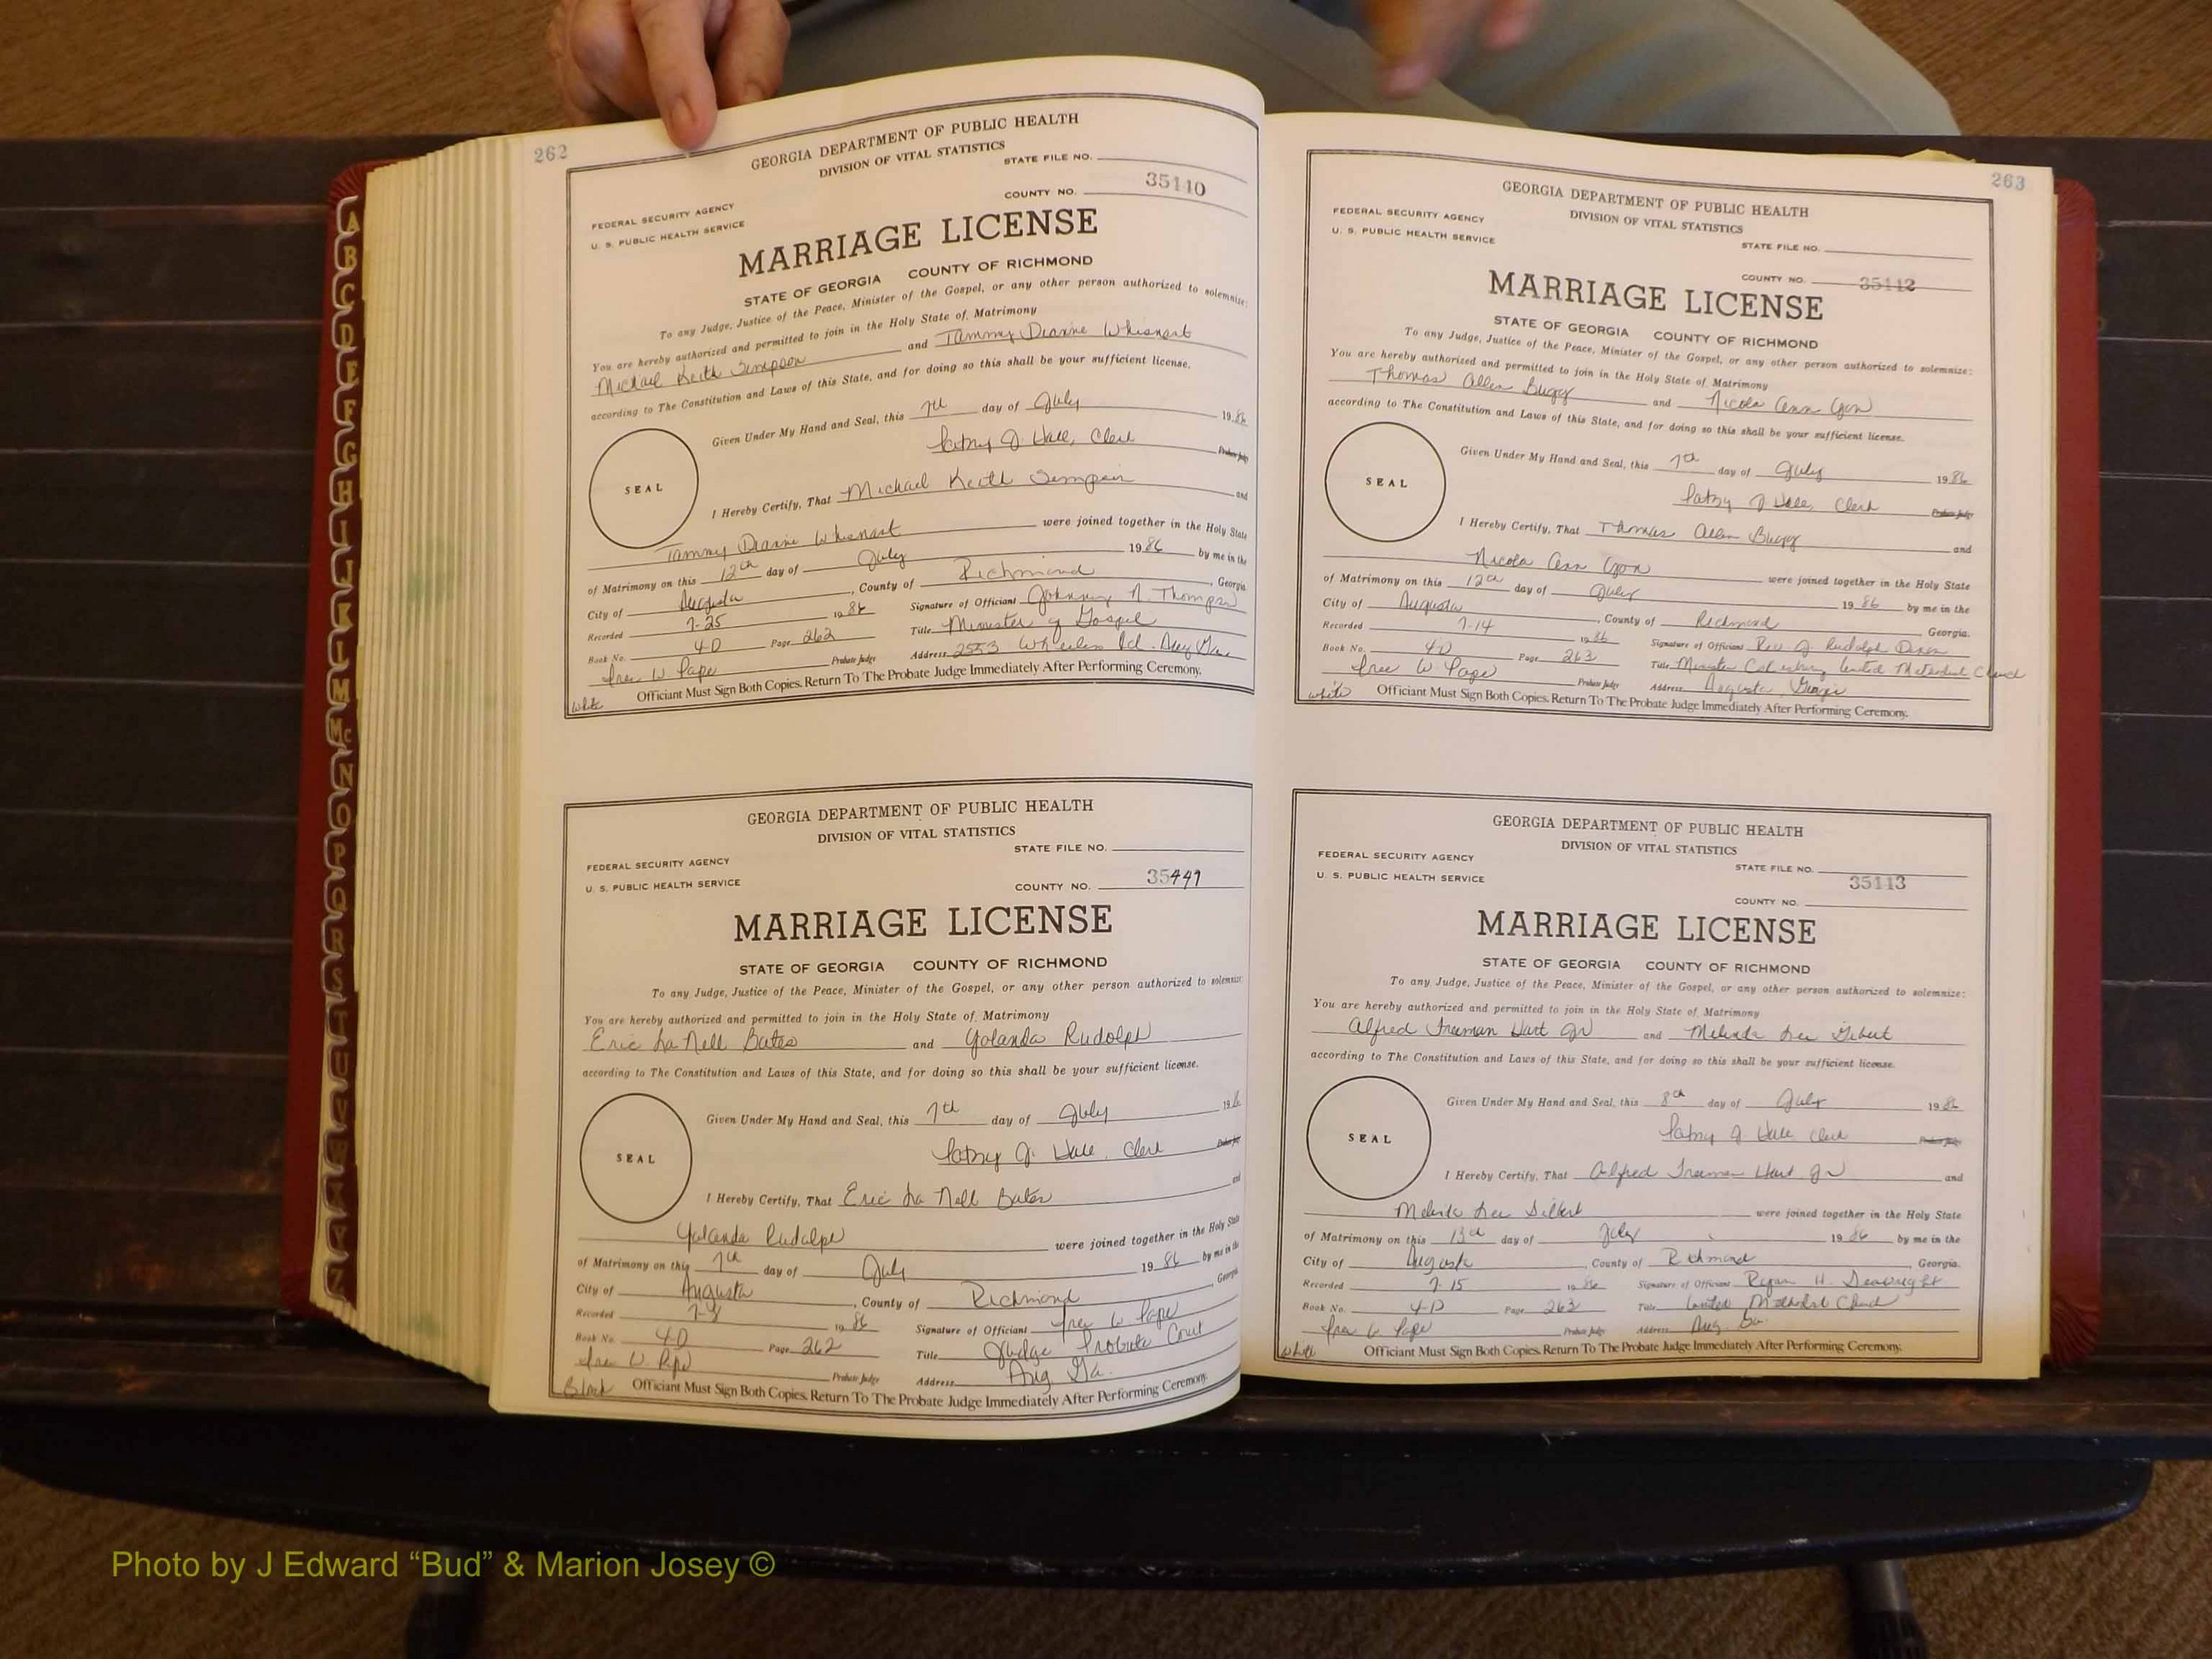 262
GEORGIA DEPARTMENT OF PUBLIC HEALTH
DIVISION OF VITAL STATISTICS
STATE FILE NO.
COUNTY NO. 35110
FEDERAL SECURITY AGENCY
U. S. PUBLIC HEALTH SERVICE
MARRIAGE LICENSE
STATE OF GEORGIA COUNTY OF RICHMOND
To any Judge, Justice of the Peace, Minister of the Gospel, or any other person authorized to solemnize:
You are hereby authorized and permitted to join in the Holy State of Matrimony
Michael Keith Simpson and Tammy Dianne Whisnant
according to The Constitution and Laws of this State, and for doing so this shall be your sufficient license.
Given Under My Hand and Seal, this 7th day of July 1986
Patsy J. Hall, Clerk Probate Judge
SEAL
I Hereby Certify, That Michael Keith Simpson and
Tammy Dianne Whisnant were joined together in the Holy State
of Matrimony on this 12th day of July 1986 by me in the
City of Augusta, County of Richmond, Georgia
Recorded 7-25 1986 Signature of Officiant Johnny N. Thompson
Book No. 4-D Page 262 Title Minister of Gospel
W Pape Probate Judge Address 2553 Wheeless Rd.
white Officiant Must Sign Both Copies. Return To The Probate Judge Immediately After Performing Ceremony.
GEORGIA DEPARTMENT OF PUBLIC HEALTH
DIVISION OF VITAL STATISTICS
STATE FILE NO.
FEDERAL SECURITY AGENCY
U. S. PUBLIC HEALTH SERVICE
COUNTY NO. 35441
MARRIAGE LICENSE
STATE OF GEORGIA COUNTY OF RICHMOND
To any Judge, Justice of the Peace, Minister of the Gospel, or any other person authorized to solemnize:
You are hereby authorized and permitted to join in the Holy State of Matrimony
Eric La Nell Bates and Yolanda Rudolph
according to The Constitution and Laws of this State, and for doing so this shall be your sufficient license.
Given Under My Hand and Seal, this 7th day of July 1986
Patsy J. Hall, Clerk Probate Judge
SEAL
I Hereby Certify, That Eric La Nell Bates and
Yolanda Rudolph were joined together in the Holy State
of Matrimony on this 7th day of July 1986 by me in the
City of Augusta, County of Richmond, Georgia
Recorded 7-8 1986 Signature of Officiant W Pape
Book No. 4-D Page 262 Title Judge Probate Court
W. Pape Probate Judge Address Aug. Ga.
Black Officiant Must Sign Both Copies. Return To The Probate Judge Immediately After Performing Ceremony.
263
GEORGIA DEPARTMENT OF PUBLIC HEALTH
DIVISION OF VITAL STATISTICS
FEDERAL SECURITY AGENCY
U. S. PUBLIC HEALTH SERVICE
STATE FILE NO.
COUNTY NO. 35112
MARRIAGE LICENSE
STATE OF GEORGIA COUNTY OF RICHMOND
To any Judge, Justice of the Peace, Minister of the Gospel, or any other person authorized to solemnize:
You are hereby authorized and permitted to join in the Holy State of Matrimony
Thomas Allen Buggy and Nicola Ann
according to The Constitution and Laws of this State, and for doing so this shall be your sufficient license.
Given Under My Hand and Seal, this 7th day of July 1986
Patsy J Hall, Clerk Probate Judge
SEAL
I Hereby Certify, That Thomas Allen Buggy and
Nicola Ann were joined together in the Holy State
of Matrimony on this 12th day of July 1986 by me in the
City of Augusta, County of Richmond Georgia.
Recorded 7-14 1986 Signature of Officiant Rev. J. Rudolph
Book No. 4-D Page 263 Title Minister United Methodist Church
W. Pape Probate Judge Address Augusta, Georgia
white Officiant Must Sign Both Copies. Return To The Probate Judge Immediately After Performing Ceremony.
GEORGIA DEPARTMENT OF PUBLIC HEALTH
DIVISION OF VITAL STATISTICS
FEDERAL SECURITY AGENCY
U. S. PUBLIC HEALTH SERVICE
STATE FILE NO.
35113
COUNTY NO.
MARRIAGE LICENSE
STATE OF GEORGIA COUNTY OF RICHMOND
To any Judge, Justice of the Peace, Minister of the Gospel, or any other person authorized to solemnize:
You are hereby authorized and permitted to join in the Holy State of Matrimony
Alfred Freeman Hart Jr and Melinda Lee Gilbert
according to The Constitution and Laws of this State, and for doing so this shall be your sufficient license.
Given Under My Hand and Seal, this 8th day of July 1986
Patsy J Hall, Clerk Probate Judge
SEAL
I Hereby Certify, That Alfred Freeman Hart Jr and
Melinda Lee Gilbert were joined together in the Holy State
of Matrimony on this 13th day of July 1986 by me in the
City of Augusta, County of Richmond, Georgia.
Recorded 7-15 1986 Signature of Officiant H. Seawright
Book No. 4-D Page 263 Title United Methodist Church
W. Pape Probate Judge Address Aug. Ga.
white Officiant Must Sign Both Copies. Return To The Probate Judge Immediately After Performing Ceremony.
A
B
C
D
E
F
G
H
I
J
K
L
M
MC
N
O
P
Q
R
S
T
U
V
W
X
Y
Z
Photo by J Edward “Bud” & Marion Josey ©